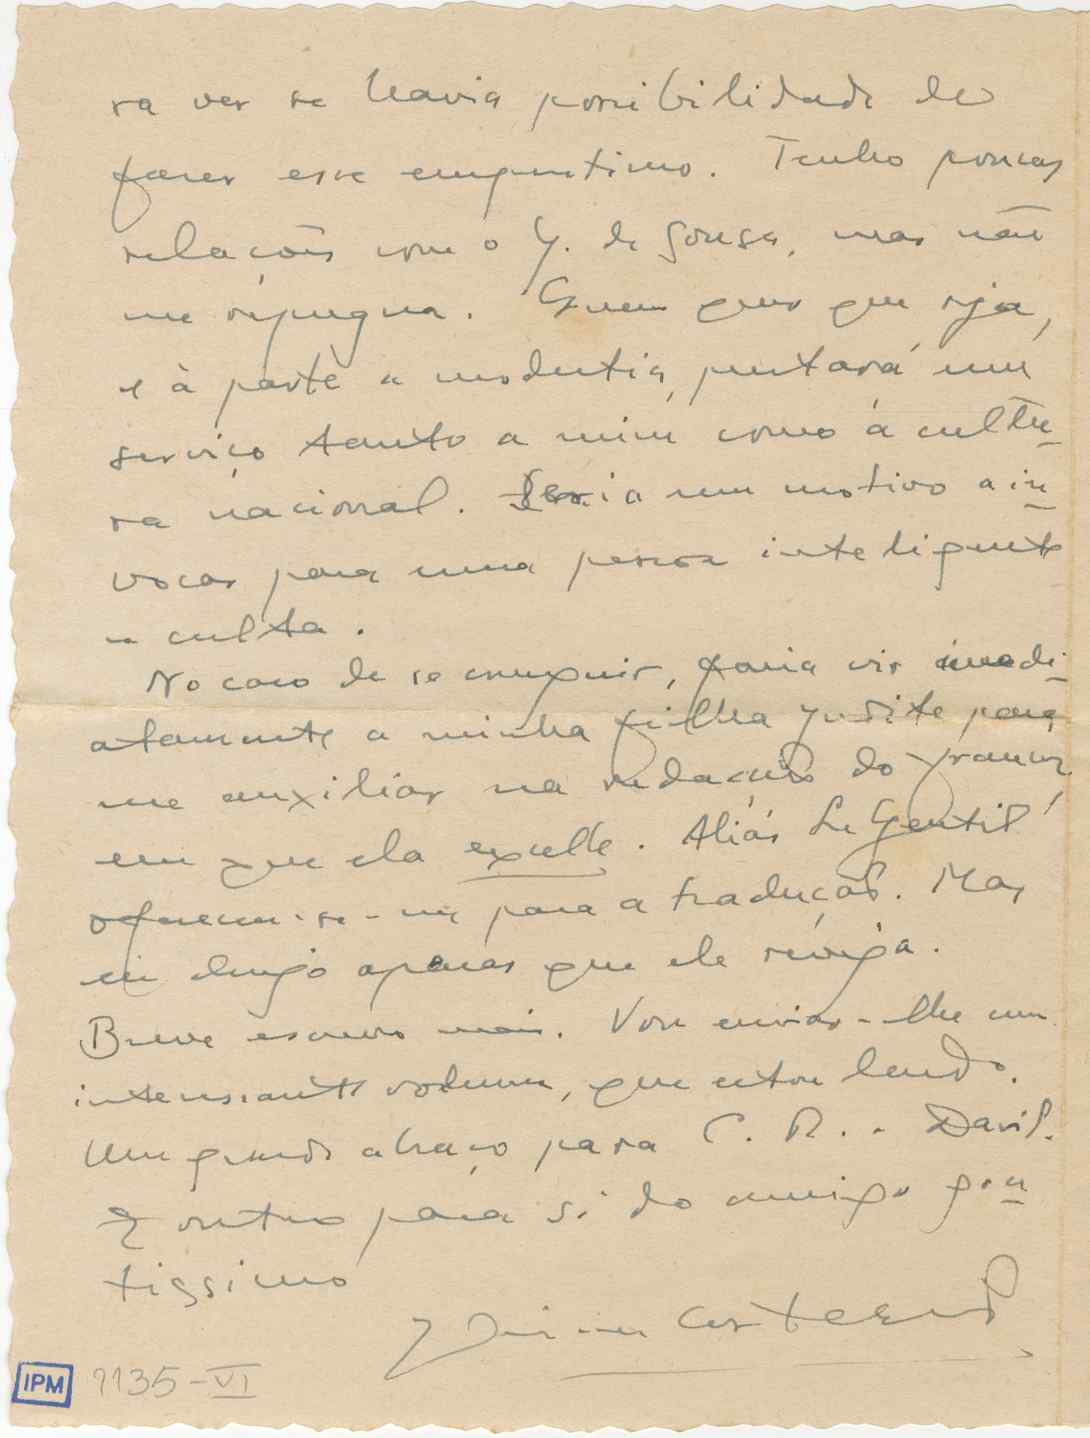 ra ver se havia possibilidade de
fazer esse emprestimo. Tenho poucas
relações com o Y. de Sousa, mas não
me repugna. Quem quer que seja,
e à parte a modestia, prestará um
serviço tanto a mim como á cultu-
ra nacional. Seria um motivo a in-
vocar para uma pessoa inteligente
e culta.
No caso de se conseguir, faria vir imedi-
atamente a minha filha Judite para
me auxiliar na redacção do francez
em que ela excelle. Aliás Le Gentil
ofereceu-se-me para a tradução. Mas
eu desejo apenas que ele reveja.
Breve escrevo mais. Vou enviar-lhe um
interessante volume, que estou lendo.
Um grande abraço para C. R. e David.
E outro para si do amigo gra-
tissimo
Jaime Cortesão
IPM 1135-VI